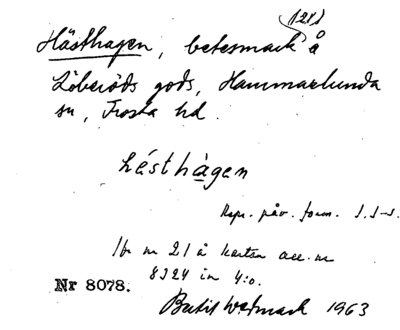 (21)
Hästhagen, betesmark å
Löberöds gods, Hammarlunda
sn, Frosta hd.
hästhàgen
form. S.S-s.
nr 21 å kartan acc. nr
8324 in 4:o.
Nr 8078.
Bertil 1963